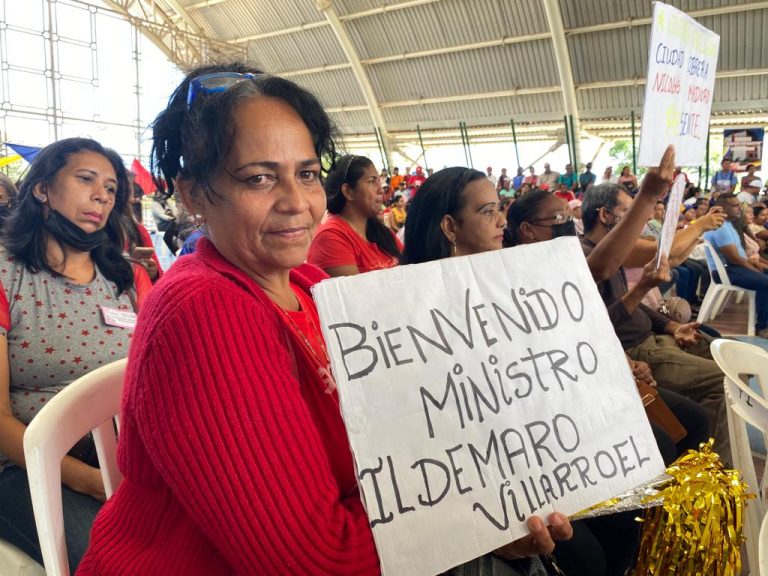 BIENVENIDO
MINISTRO
ILDEMARO
VILLARROEL
CIUDAD OBRERA
NICOLÁS MADURO